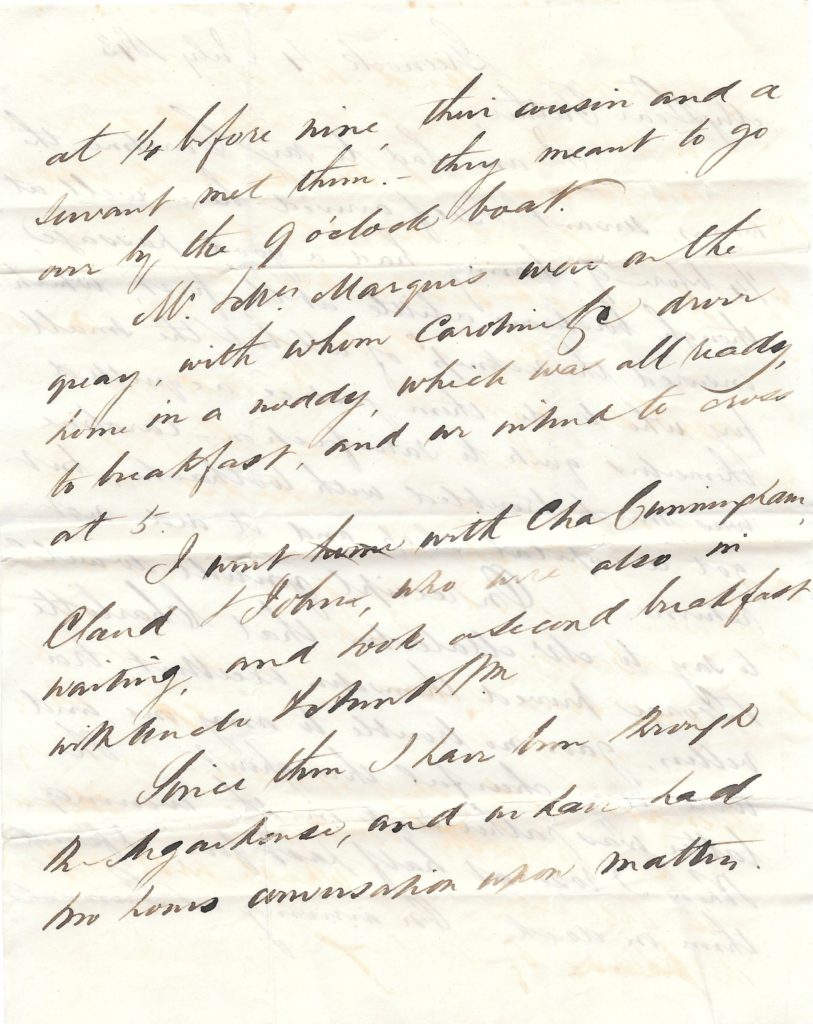 at ¼ before nine, their cousin and a
servant met them. – they meant to go
over by the 9 o'clock boat.
Mr. & Mrs Marquis were on the
quay, with whom Caroline &c drove
home in a noddy, which was all ready,
to breakfast, and we intend to cross
at 5.
I went home with Cha Cunningham,
Claud & John, who were also in
waiting, and took a second breakfast
with Uncle & Aunt Wm
Since then I have been through
the Sugarhouse, and we have had
two hours conversation upon matters.